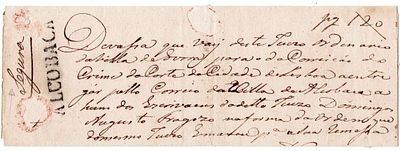 pg 120
Segura
ALCOBAÇA
Devassa que vay deste Juizo Ordenario
da Villa de para o da Correição do
Crime da Corte da Cidade de Lisboa aentre
gar pello Correio da Villa de Alcobaça a
hum dos Escrivaens do dito Juizo Domingos
Augusto na forma da Ordem que
do mesmo Juizo